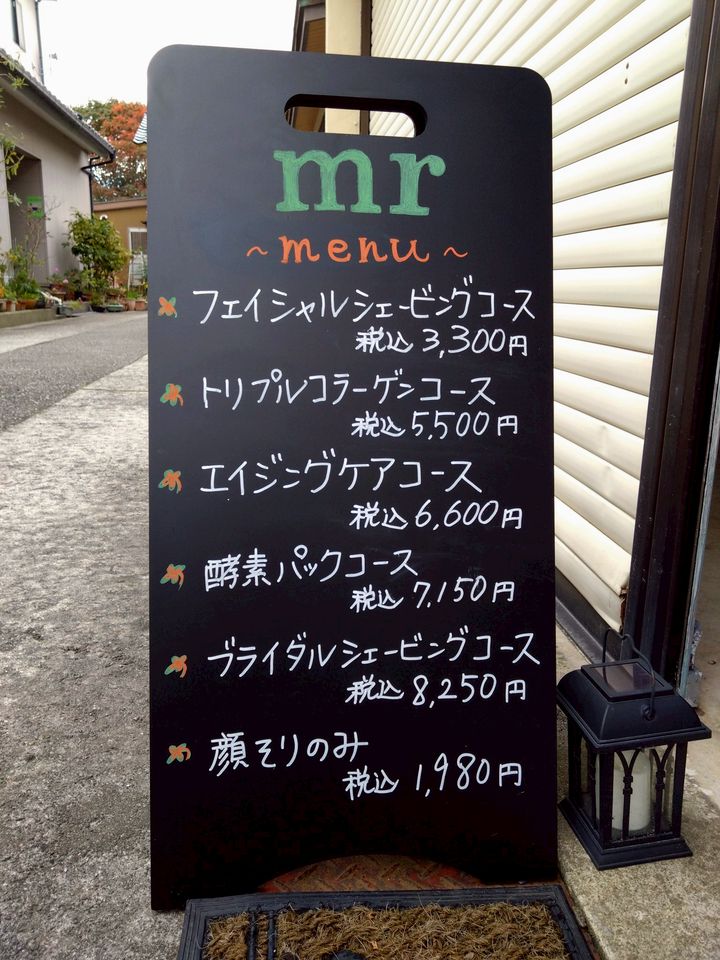 mr
~menu~
フェイシャルシェービングコース
税込3,300円
トリプルコラーゲンコース
税込5,500円
エイジングケアコース
税込6,600円
酵素パックコース
税込7,150円
ブライダルシェービングコース
税込8,250円
顔そりのみ
税込1,980円